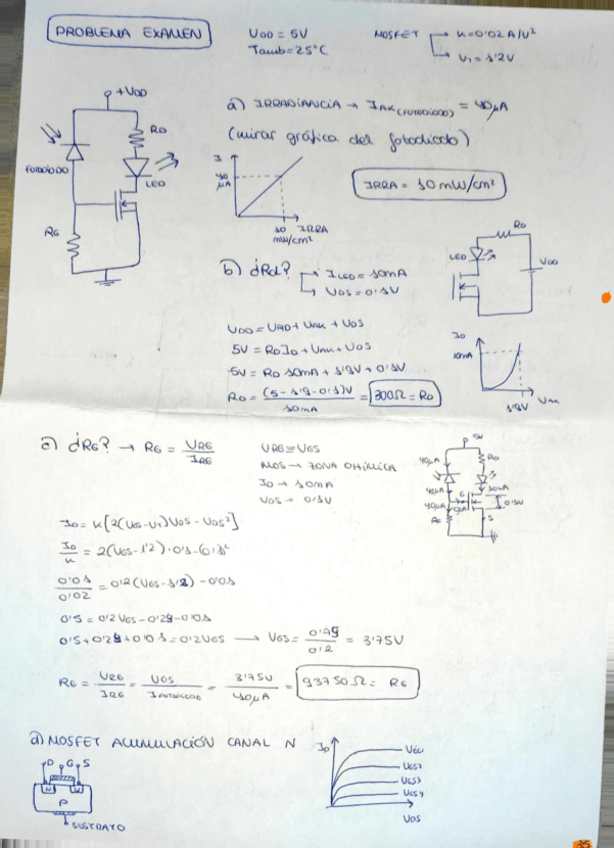 PROBLEMA EXAMEN
VDD = 5V
Tamb = 25°C
MOSFET → K = 0'02 A/V²
→ VT = 1'2V
+VDD
RD
FOTODIODO
LED
RG
a) IRRADIANCIA → IAK (FOTODIODO) = 40μA
(mirar gráfica del fotodiodo)
I
40 μA
10 IRRA
mW/cm²
IRRA = 10 mW/cm²
b) ¿Rd? → ILED = 10mA
→ VDS = 0'1V
RD
LED
VDD
VDD = VRD + VAK + VDS
5V = RD ID + VAK + VDS
5V = RD 10mA + 1'9V + 0'1V
RD = (5 - 1'9 - 0'1)V / 10mA = 300Ω = RD
ID
10mA
1'9V VAK
c) ¿RG? → RG = VRG / IRG
VRG = VGS
MOS → ZONA OHMICA
ID → 10mA
VDS → 0'1V
5V
40μA
RD
40μA
10mA
0'1V
40μA
0A
G
S
RG
ID = K[2(VGS - VT)VDS - VDS²]
ID / K = 2(VGS - 1'2)·0'1 - (0'1)²
0'01 / 0'02 = 0'2(VGS - 1'2) - 0'01
0'5 = 0'2VGS - 0'24 - 0'01
0'5 + 0'24 + 0'01 = 0'2VGS → VGS = 0'75 / 0'2 = 3'75V
RG = VRG / IRG = VGS / IFOTODIODO = 3'75V / 40μA = 93750Ω = RG
d) MOSFET ACUMULACIÓN CANAL N
D G S
N N
P
SUSTRATO
ID
VGS1
VGS2
VGS3
VGS4
VDS
35